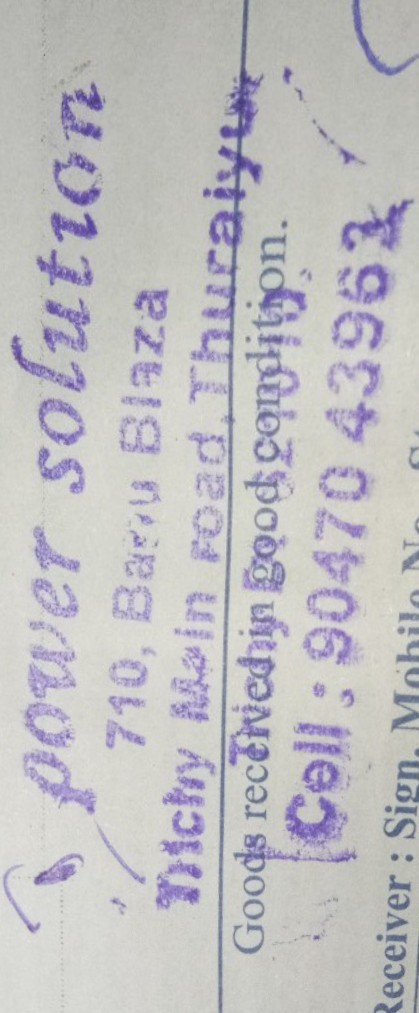 power solution
710, Blaza
Trichy Main road, Thuraiyur
Goods received in good condition.
Cell : 90470 43963
Receiver : Sign. Mobile No